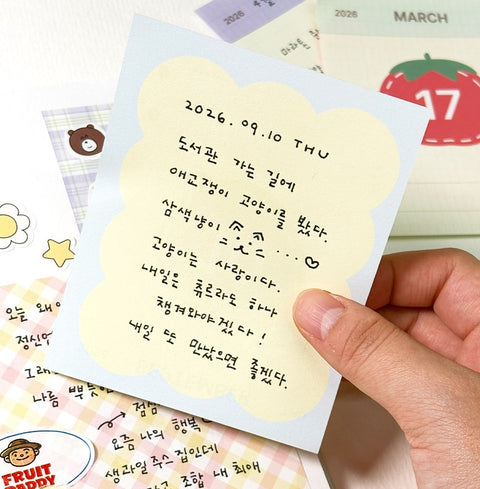 2026. 09. 10 THU
도서관 가는 길에
애교쟁이 고양이를 봤다.
삼색냥이 ... ♡
고양이는 사랑이다.
내일은 츄르라도 하나
챙겨와야겠다!
내일 또 만났으면 좋겠다.
2026
MARCH
17
오늘
나름 뿌듯
요즘 나의 행복
생과일 주스 집인데
조합 내 최애
FRUIT
DADDY